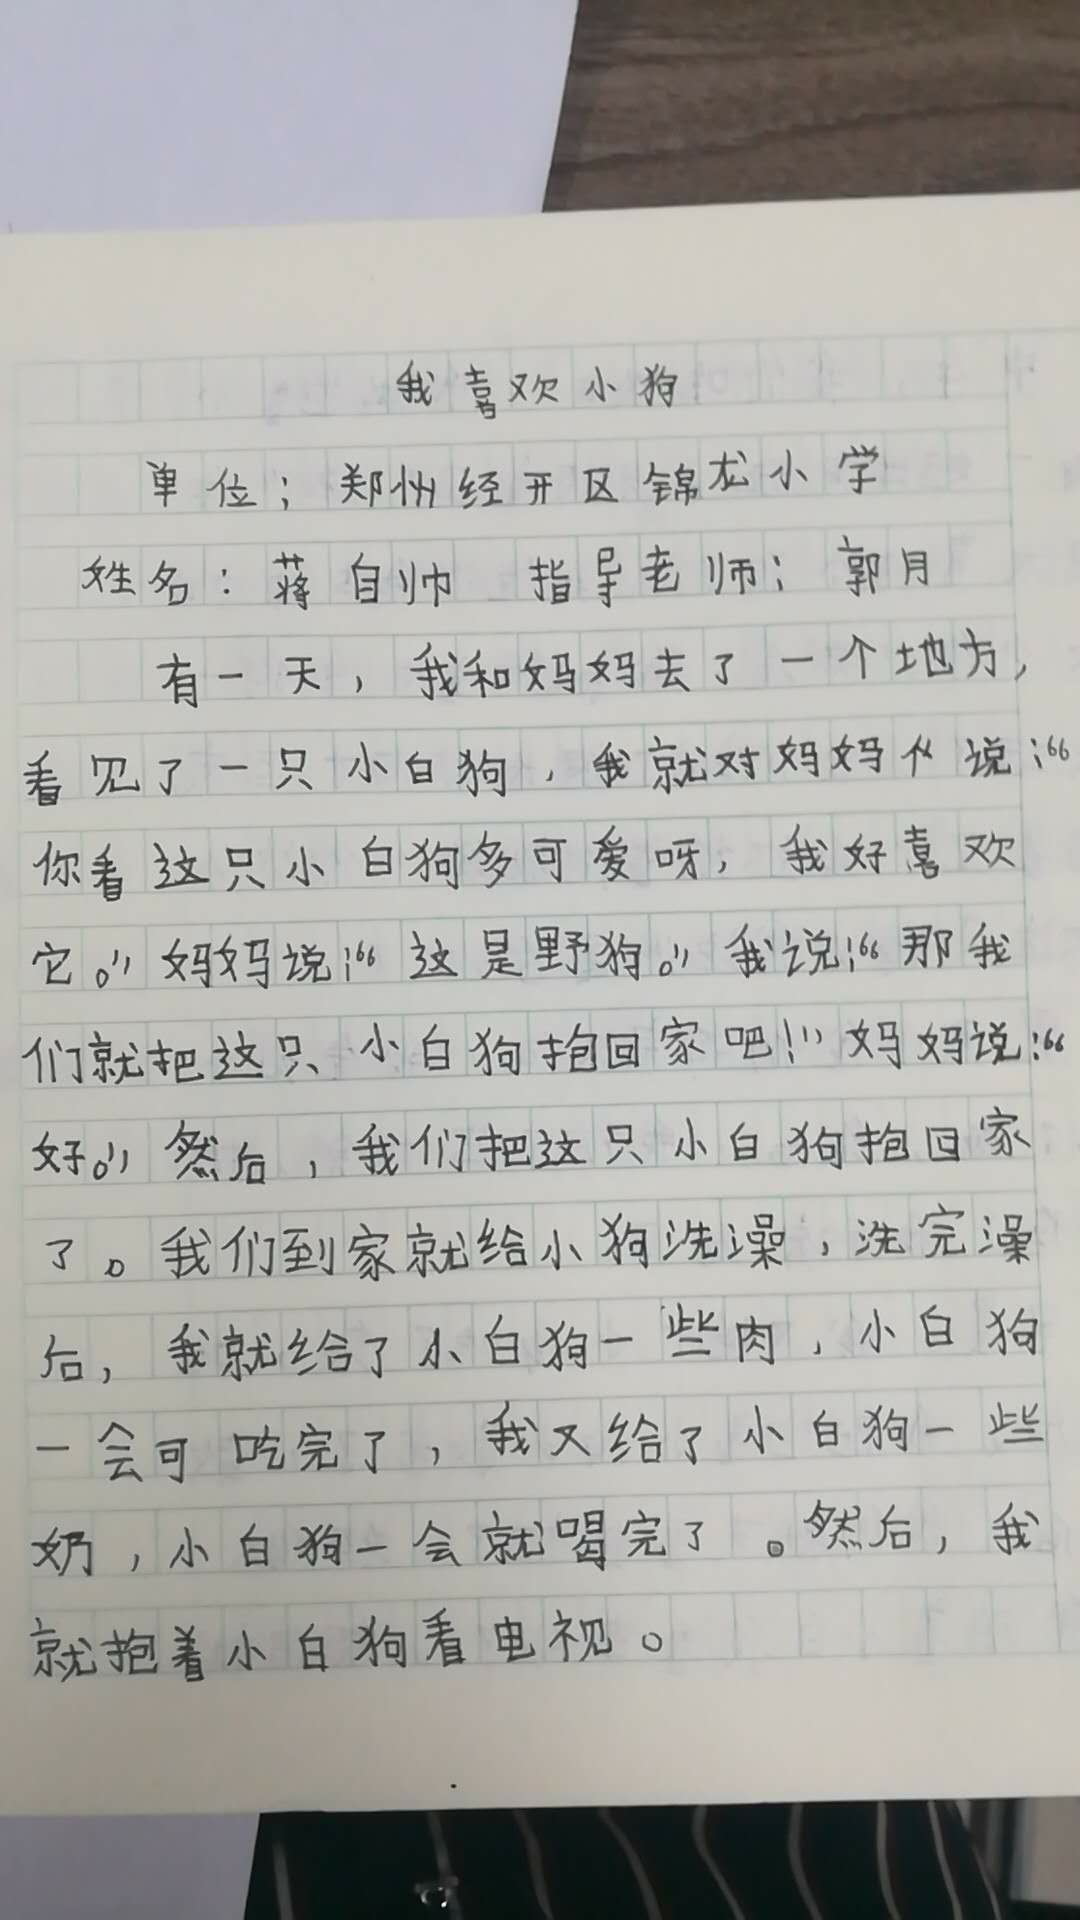 我喜欢小狗
单位：郑州经开区锦龙小学
姓名：蒋自帅 指导老师：郭月
有一天，我和妈妈去了一个地方，
看见了一只小白狗，我就对妈妈说：“
你看这只小白狗多可爱呀，我好喜欢
它。”妈妈说：“这是野狗。”我说：“那我
们就把这只小白狗抱回家吧！”妈妈说：“
好。”然后，我们把这只小白狗抱回家
了。我们到家就给小狗洗澡，洗完澡
后，我就给了小白狗一些肉，小白狗
一会可吃完了，我又给了小白狗一些
奶，小白狗一会就喝完了。然后，我
就抱着小白狗看电视。